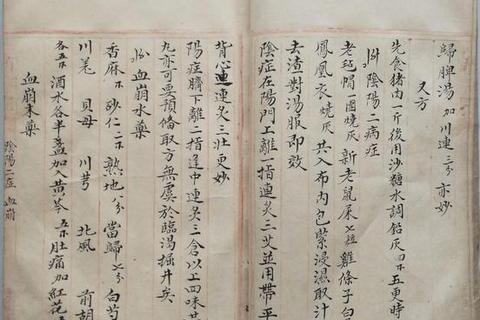 歸脾湯加川連三分亦妙
又方
先食猪肉一斤後用沙糖水調鉛灰四卜五更時
治陰陽二病症
老毡帽一團燒灰 新老鼠屎七粒 雞條子白
鳳凰衣燒灰 共入布內包紮浸濕取汁
去渣對湯服即效
陰症在陽門工離一指連灸二艾並用帶平
背心連連灸三壯更妙
陽症臍下離二指逢中連灸三合以上四味其
九亦可要預備取方無虞於臨渴掘井矣
治血崩水藥
香麻卜 砂仁二卜 熟地八分 當歸七分 白芍
川羗 貝母 川芎 北風 前胡
各五卜 酒水各半盞加入黃芩五卜肚痛加紅花五
血崩末藥
陰陽二症 血崩